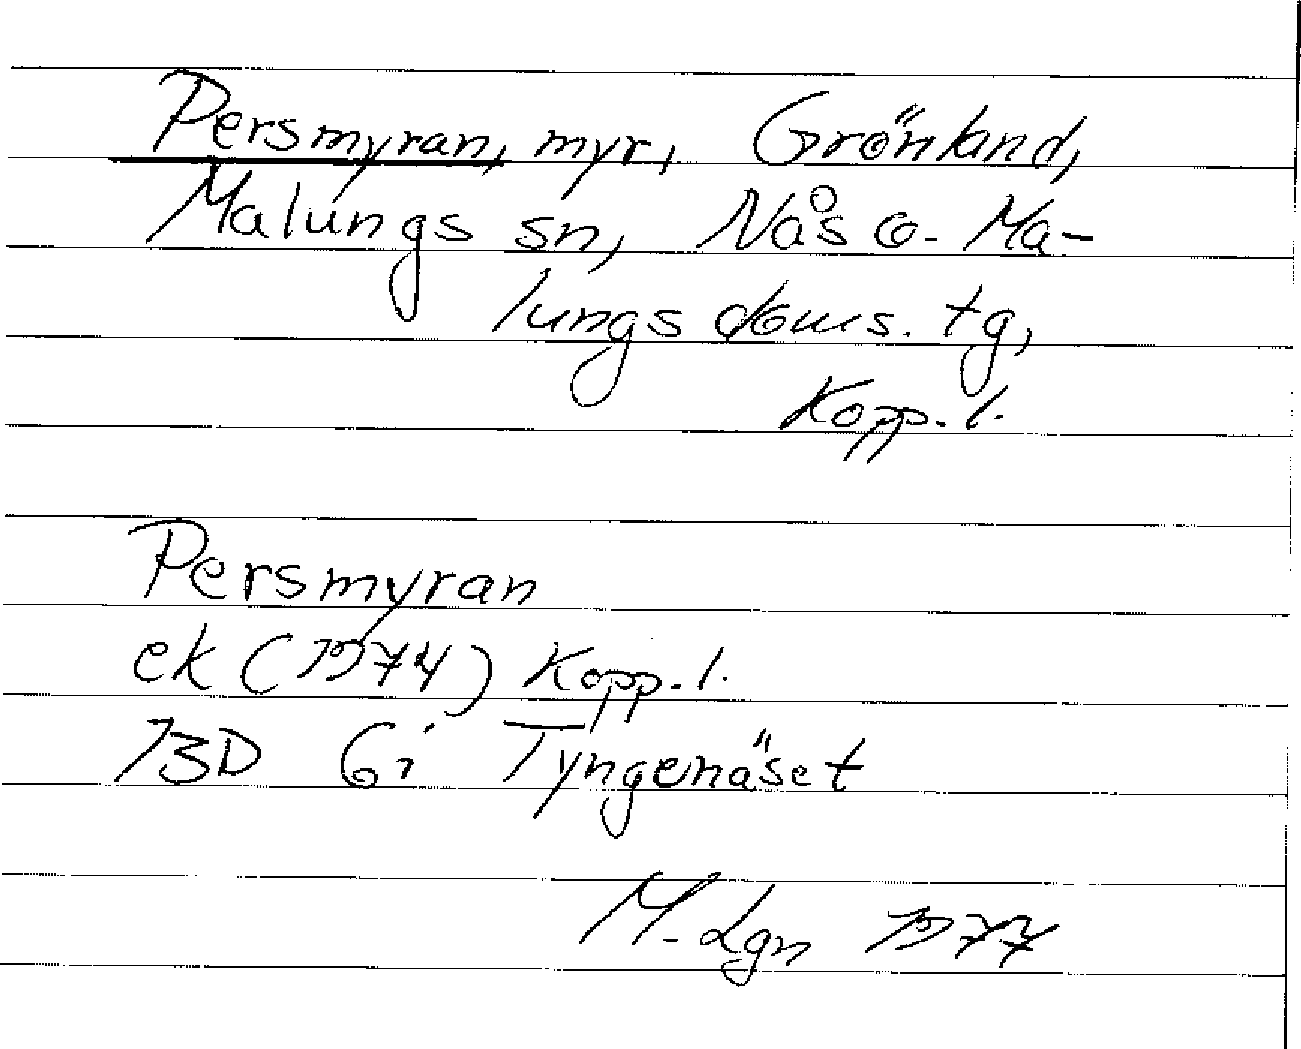 Persmyran, myr, Grönland,
Malungs sn, Nås o. Ma-
lungs doms. tg,
Kopp. l.
Persmyran
ek (1974) Kopp. l.
13D 6i Tyngenäset
M. Lgn 1977